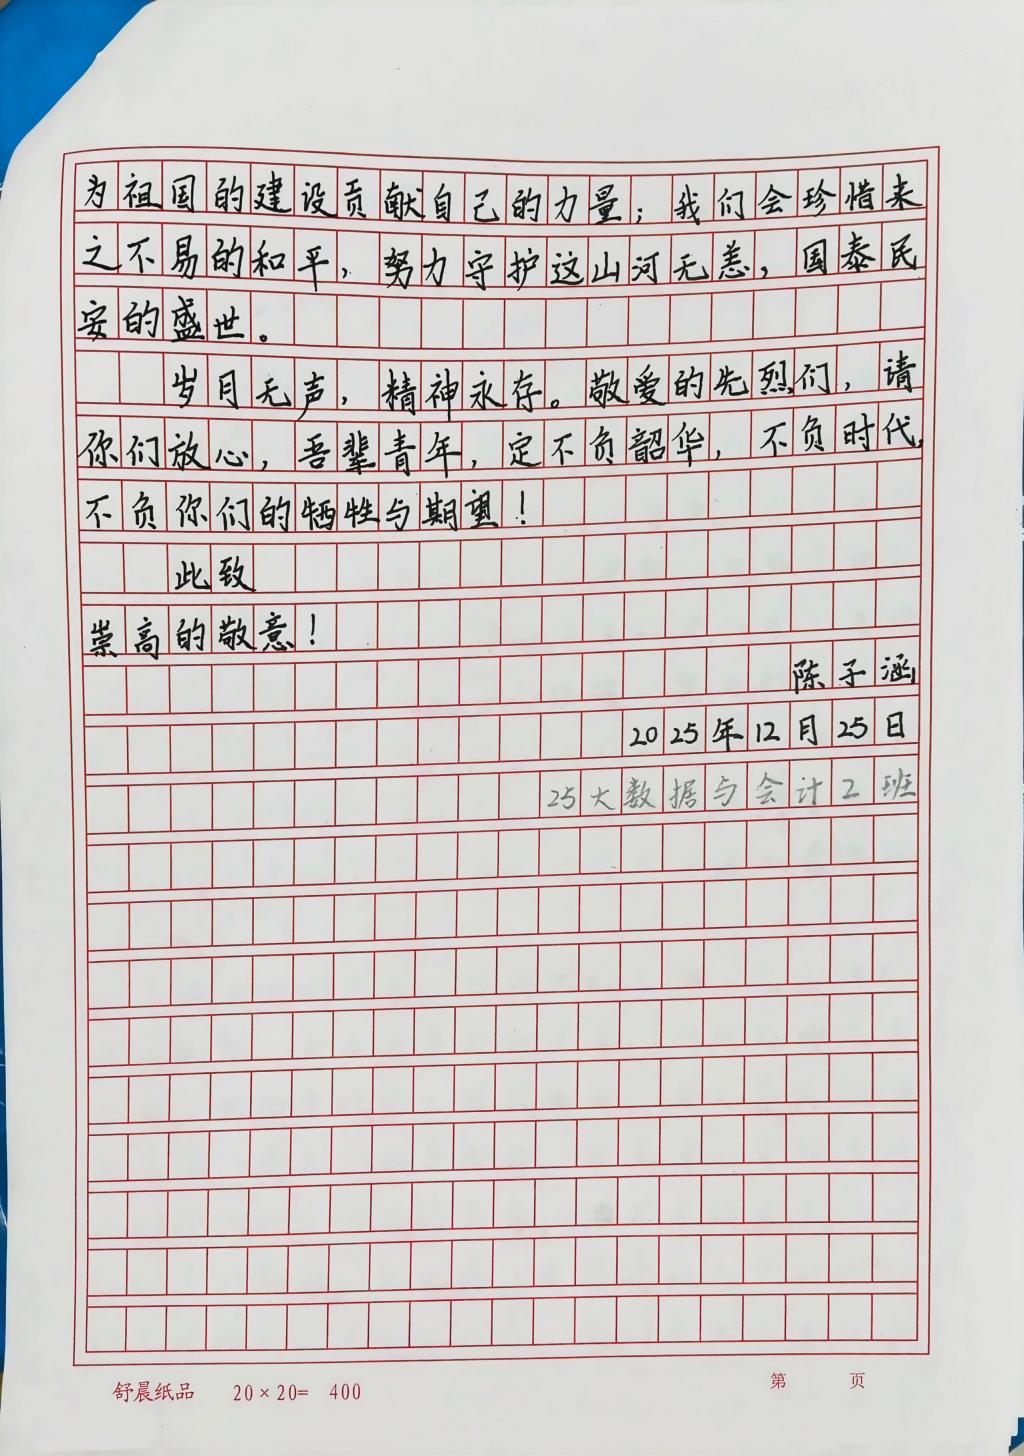 为祖国的建设贡献自己的力量；我们会珍惜来
之不易的和平，努力守护这山河无恙，国泰民
安的盛世。
岁月无声，精神永存。敬爱的先烈们，请
你们放心，吾辈青年，定不负韶华，不负时代，
不负你们的牺牲与期望！
此致
崇高的敬意！
陈子涵
2025年12月25日
25大数据与会计2班
舒晨纸品 20×20=400 第 页